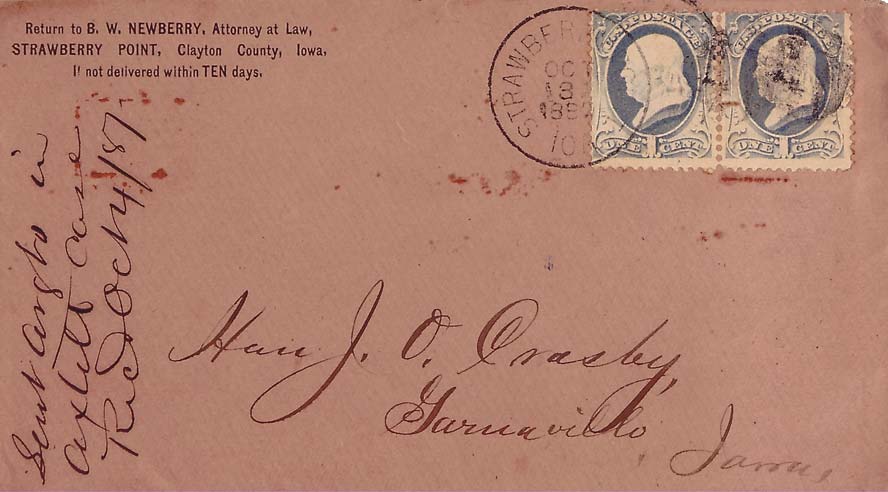 Return to B. W. NEWBERRY, Attorney at Law,
STRAWBERRY POINT, Clayton County, Iowa,
If not delivered within TEN days.
STRAWBER
OCT
18
188
U.S. POSTAGE
ONE 1 CENT
U.S. POSTAGE
ONE 1 CENT
Hon J. O. Crosby,
Garnavillo
Iowa
Sent in
case
Rec'd Oct 4/87